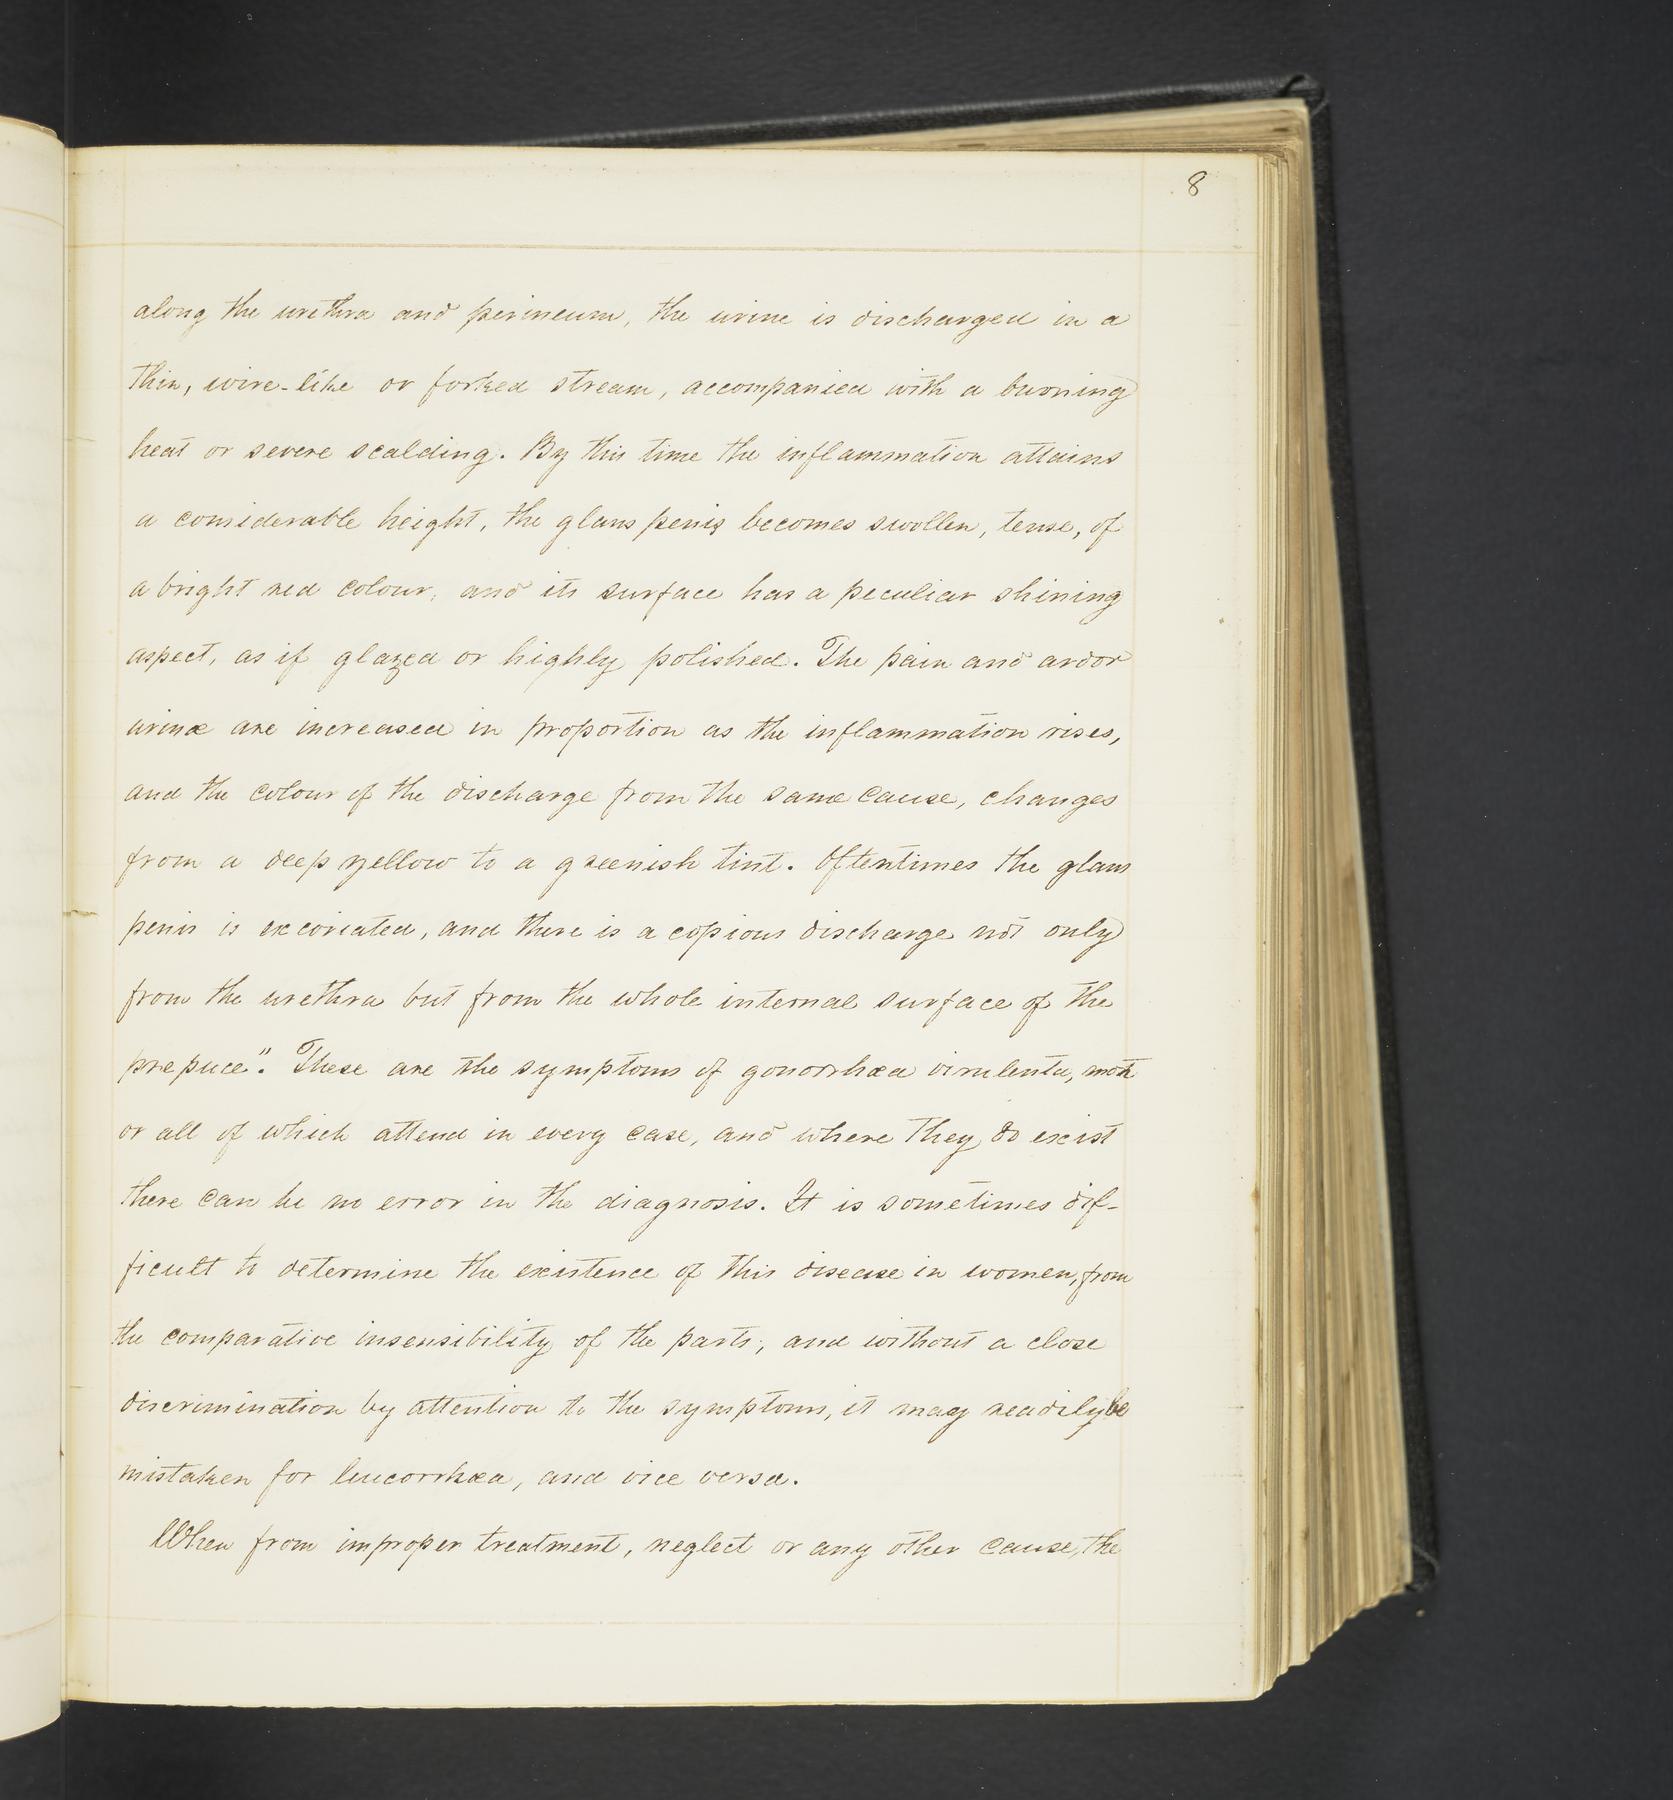 8
along the urethra and perineum, the urine is discharged in a
thin, wire-like or forked stream, accompanied with a burning
heat or severe scalding. By this time the inflammation attains
a considerable height, the glans penis becomes swollen, tense, of
a bright red colour, and its surface has a peculiar shining
aspect, as if glazed or highly polished. The pain and ardor
urinæ are increased in proportion as the inflammation rises,
and the colour of the discharge from the same cause, changes
from a deep yellow to a greenish tint. Oftentimes the glans
penis is excoriated, and there is a copious discharge not only
from the urethra but from the whole internal surface of the
prepuce". These are the symptoms of gonorrhœa virulenta, most
or all of which attend in every case, and where they do exist
there can be no error in the diagnosis. It is sometimes dif-
ficult to determine the existence of this disease in women, from
the comparative insensibility of the parts; and without a close
discrimination by attention to the symptoms, it may readily be
mistaken for leucorrhœa, and vice versa.
When from improper treatment, neglect or any other cause, the